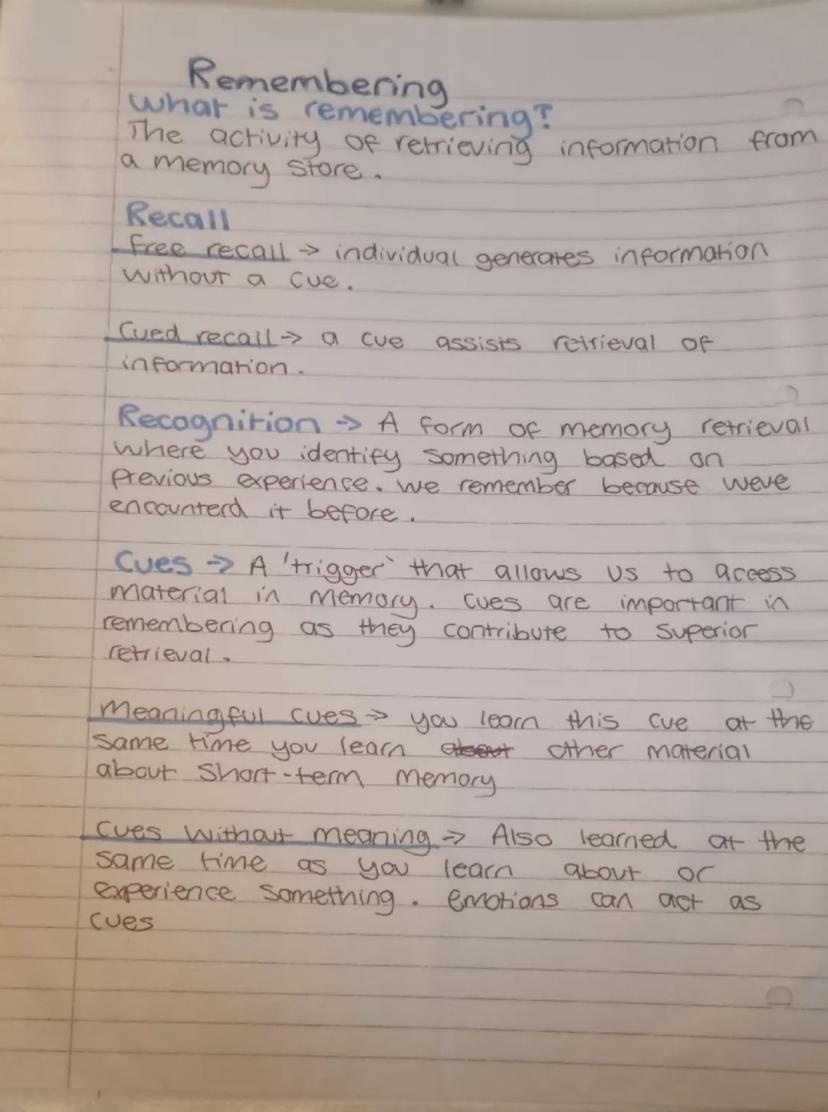 Remembering
What is remembering?
The activity of retrieving information from
a memory store.
Recall
Free recall → individual generates information
without a cue.
Cued recall → a cue assists retrieval of
information.
Recognition → A form of memory retrieval
where you identify something based on
previous experience. We remember because weve
encounterd it before.
Cues → A 'trigger' that allows us to access
material in memory. Cues are important in
remembering as they contribute to superior
retrieval.
Meaningful cues → you learn this cue at the
same time you learn about other material
about short-term memory
Cues without meaning → Also learned at the
same time as you learn about or
experience something. Emotions can act as
cues